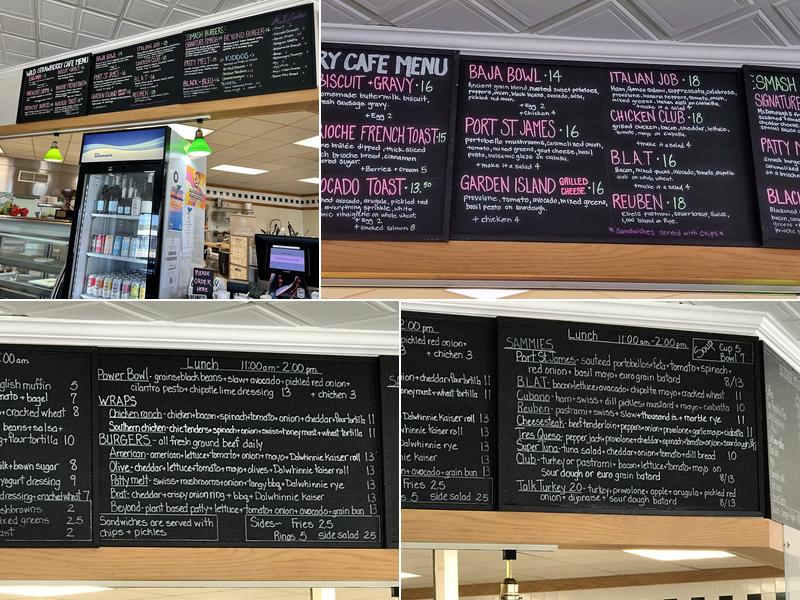 WILD STRAWBERRY CAFE MENU
BAJA BOWL · 14
ITALIAN JOB · 18
SMASH BURGERS
BEYOND BURGER
PATTY MELT
KIDDOS
BLACK + BLEU
PLEASE
ORDER
HERE
RY CAFE MENU
BISCUIT + GRAVY · 16
homemade buttermilk biscuit,
sausage gravy.
+ Egg 2
IOCHE FRENCH TOAST · 15
brulée dipped, thick sliced
brioche bread, cinnamon
sugar
+ Berries + cream 5
OCADO TOAST · 13.50
avocado, arugula, pickled red
everything sprinkle, white
vinaigrette on whole wheat
+ Egg 2
+ smoked salmon 8
BAJA BOWL · 14
Ancient grain blend, roasted sweet potatoes,
peppers, onion, black beans, avocado, salsa,
pickled red onion.
+ Egg 2
+ chicken 4
PORT ST. JAMES · 16
portobello mushrooms, caramelized onion,
tomato, mixed greens, goat cheese, basil
pesto, balsamic glaze on ciabatta.
+ chicken 4
GARDEN ISLAND GRILLED CHEESE · 16
provolone, tomato, avocado, mixed greens,
basil pesto on sourdough.
+ chicken 4
ITALIAN JOB · 18
Ham, Genoa salami, soppressata, calabrese,
provolone, banana peppers, tomato, onion,
mixed greens, Italian aioli on ciabatta.
+ make it a salad 4
CHICKEN CLUB · 18
grilled chicken, bacon, cheddar, lettuce,
tomato, mayo on ciabatta.
+ make it a salad 4
B.L.A.T · 16
Bacon, mixed greens, avocado, tomato, chipotle
aioli on whole wheat.
+ make it a salad 4
REUBEN · 18
Ebels pastrami, sauerkraut, swiss,
1,000 Island on Rye.
* Sandwiches served with chips *
SMASH
SIGNATURE
PATTY M
BLACK
:00am
english muffin 5
tomato + bagel 7
+ cracked wheat 8
beans + salsa +
+ flour tortilla 10
milk + brown sugar 8
yogurt dressing 9
dressing + cracked wheat 7
hashbrowns 2
mixed greens 2.5
toast 2
Lunch 11:00am - 2:00pm
Power Bowl - grains + black beans + slaw + avocado + pickled red onion +
cilantro pesto + chipotle lime dressing 13 + chicken 3
WRAPS
Chicken ranch - chicken + bacon + spinach + tomato + onion + cheddar + flour tortilla 11
Southern chicken - chic tenders + spinach + onion + swiss + honey must + wheat tortilla 11
BURGERS - all fresh ground beef daily
American - american + lettuce + tomato + onion + mayo + Dalwhinnie Kaiser roll 13
Olive - cheddar + lettuce + tomato + mayo + olives + Dalwhinnie Kaiser 13
Patty melt - swiss + mushrooms + onion + tangy bbq + Dalwhinnie rye 13
Brat - cheddar + crispy onion ring + bbq + Dalwhinnie kaiser 13
Beyond - plant based patty + lettuce + tomato + onion + avocado + grain bun 13
Sandwiches are served with
chips + pickles
Sides - Fries 2.5
Rings 5 side salad 2.5
2:00 pm
pickled red onion +
+ chicken 3
onion + cheddar + flour tortilla 11
wheat tortilla 11
Dalwhinnie Kaiser roll 13
Dalwhinnie Kaiser 13
Dalwhinnie rye 13
kaiser 13
onion + avocado + grain bun 13
Fries 2.5
5 side salad 2.5
Lunch 11:00am - 2:00pm
Soup Cup 5
Bowl 7
SAMMIES
Port St. James - sauteed portobellos + feta + tomato + spinach +
red onion + basil mayo + euro grain batard 8/13
B.L.A.T - bacon + lettuce + avocado + chipotle mayo + cracked wheat 11
Cubano - ham + swiss + dill pickles + mustard + mayo + ciabatta 10
Reuben - pastrami + swiss + slaw + thousand is. + marble rye 11
Cheesesteak - beef tenderloin + peppers + onion + provolone + garlic mayo + ciabatta 11
Tres Queso - pepper jack + provolone + cheddar + spinach + tomato + onion + sourdough
Super Tuna - tuna salad + cheddar + onion + tomato + dill bread 10
Club - turkey or pastrami + bacon + lettuce + tomato + mayo on
Sour dough or euro grain batard 8/13
Talk Turkey 2.0 - turkey + provolone + apple + arugula + pickled red
onion + dijonaise + sour dough batard 8/13